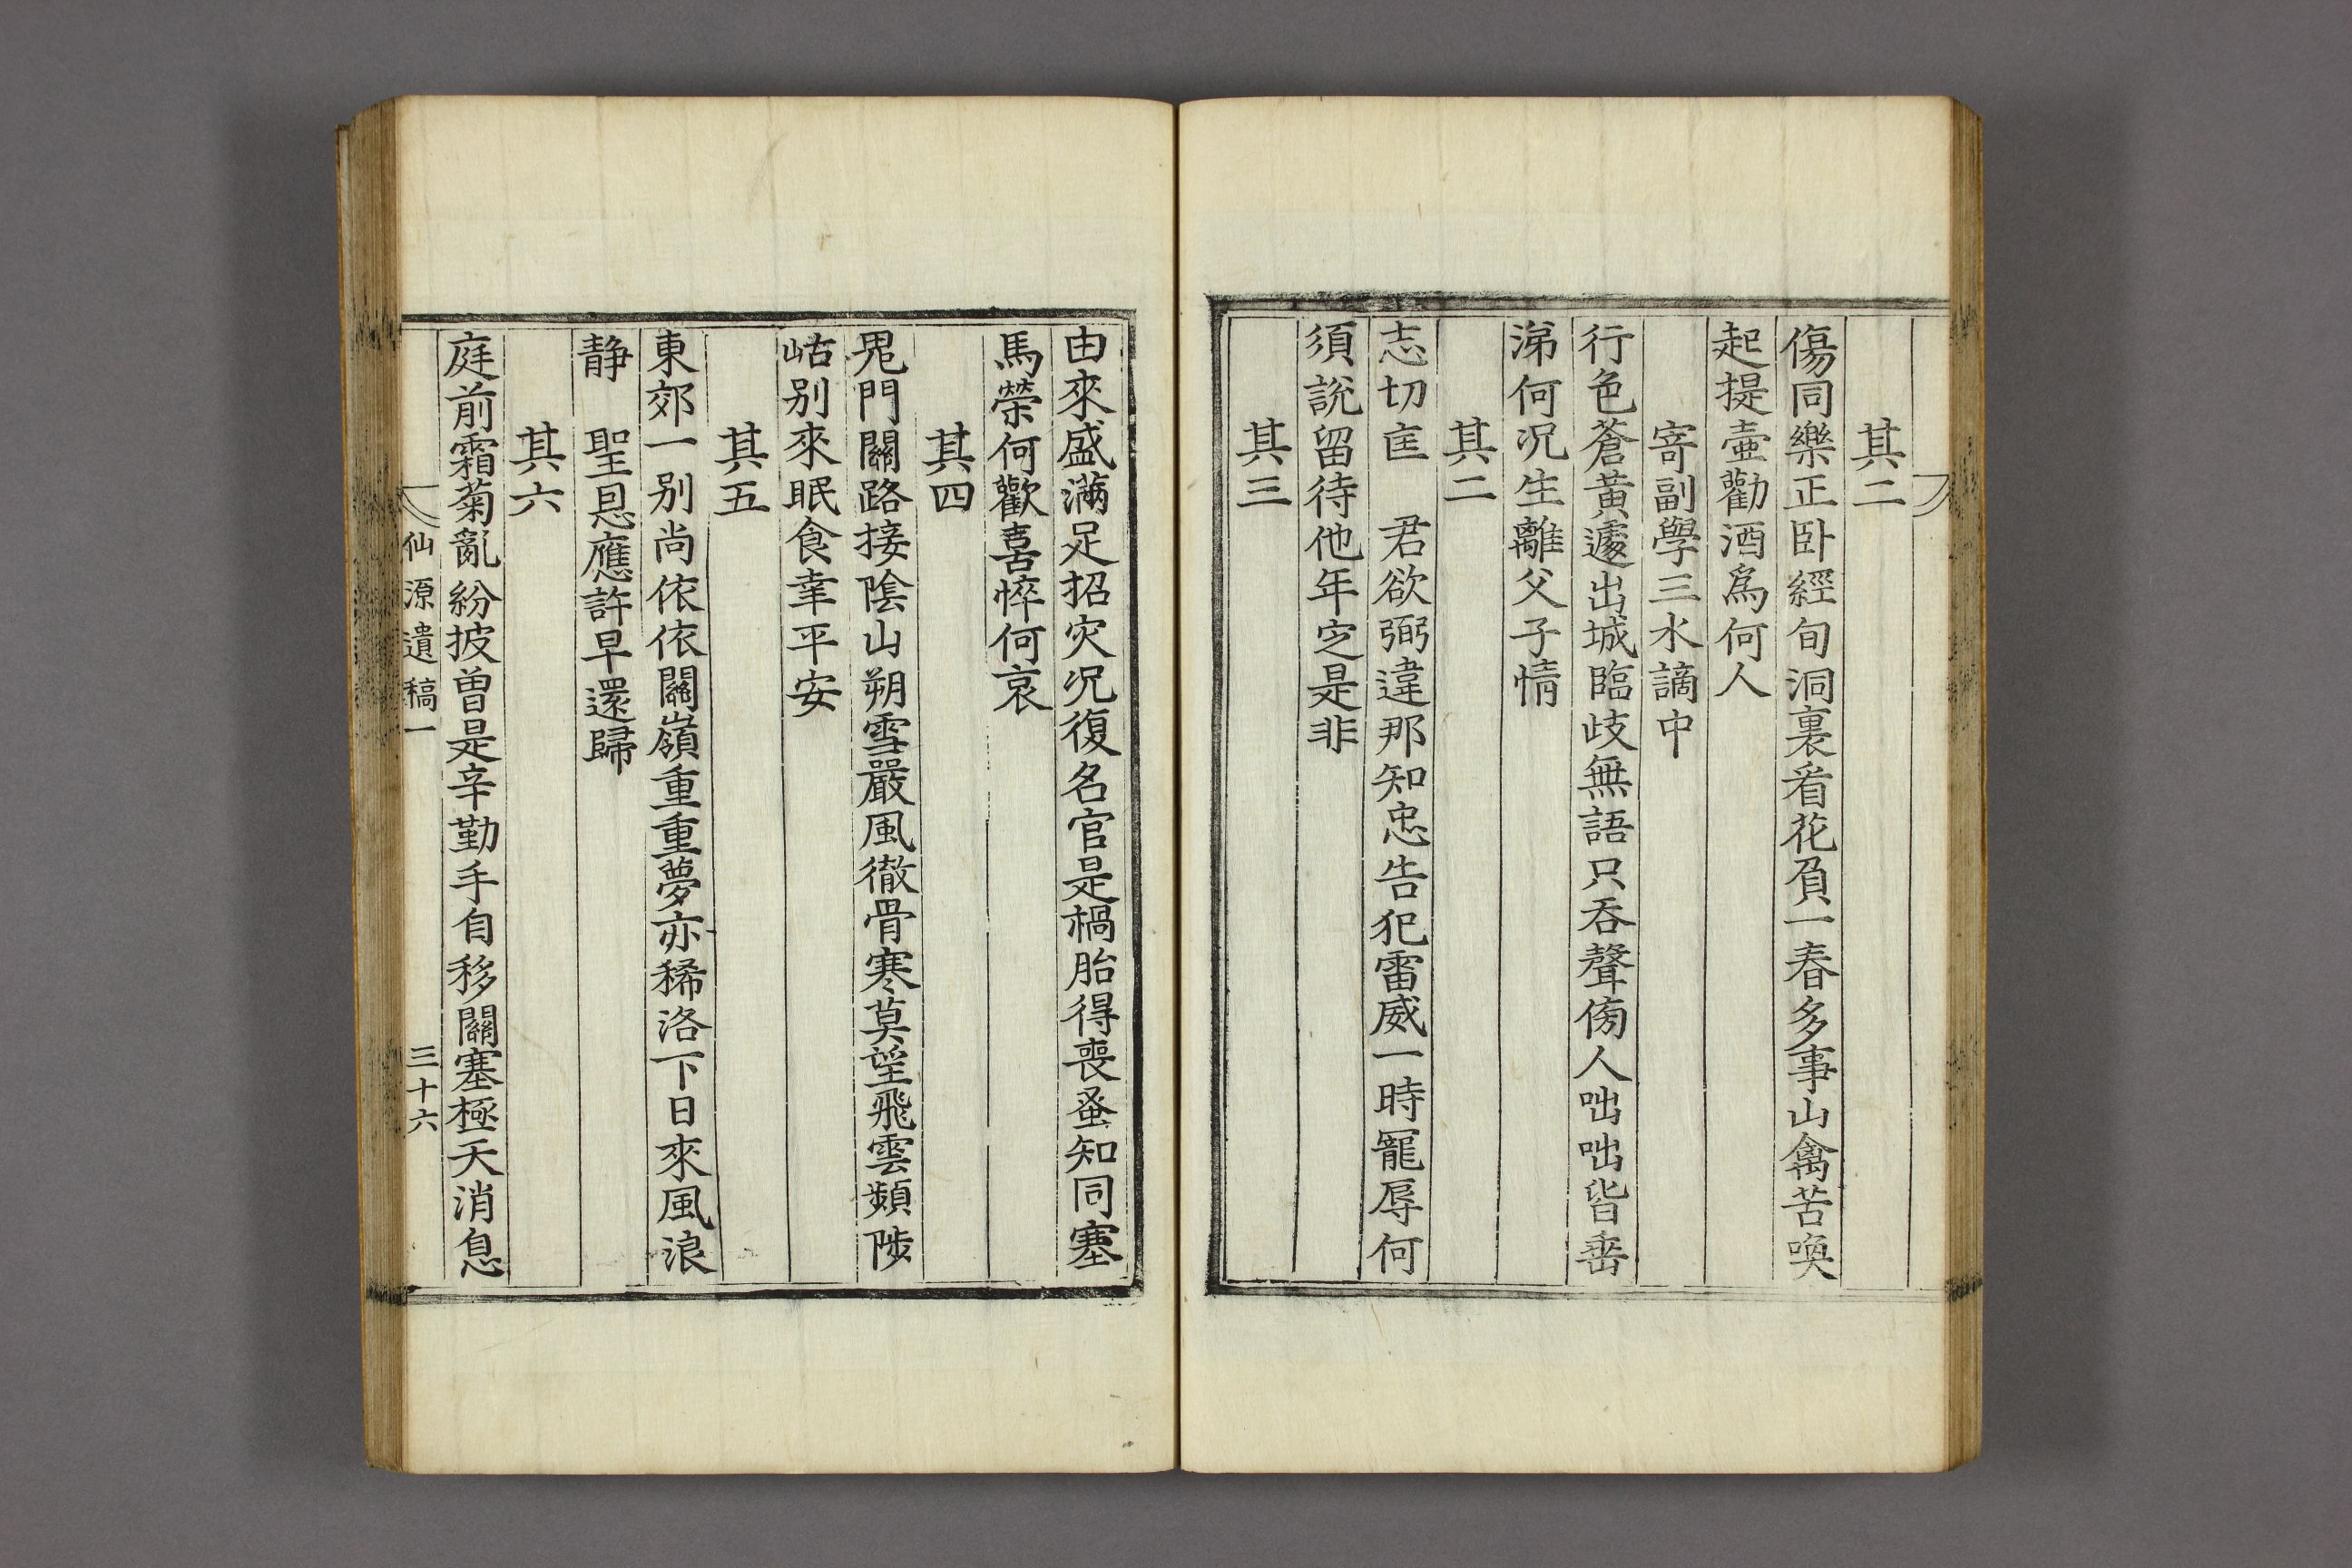 其二
傷同樂正卧經旬洞裏看花負一春多事山禽苦喚
起提壷勸酒爲何人
寄副學三水謫中
行色蒼黃遽出城臨歧無語只吞聲傍人咄咄皆垂
涕何况生離父子情
其二
志切匡 君欲弼違那知忠告犯雷威一時寵辱何
須說留待他年定是非
其三
由來盛滿足招灾况復名官是禍胎得喪蚤知同塞
馬榮何歡喜悴何哀
其四
鬼門關路接陰山朔雪嚴風徹骨寒莫望飛雲頻陟
岵别來眠食幸平安
其五
東郊一别尚依依關嶺重重夢亦稀洛下日來風浪
静 聖恩應許早還歸
其六
庭前霜菊亂紛披曾是辛勤手自移關塞極天消息
仙源遺稿一 三十六